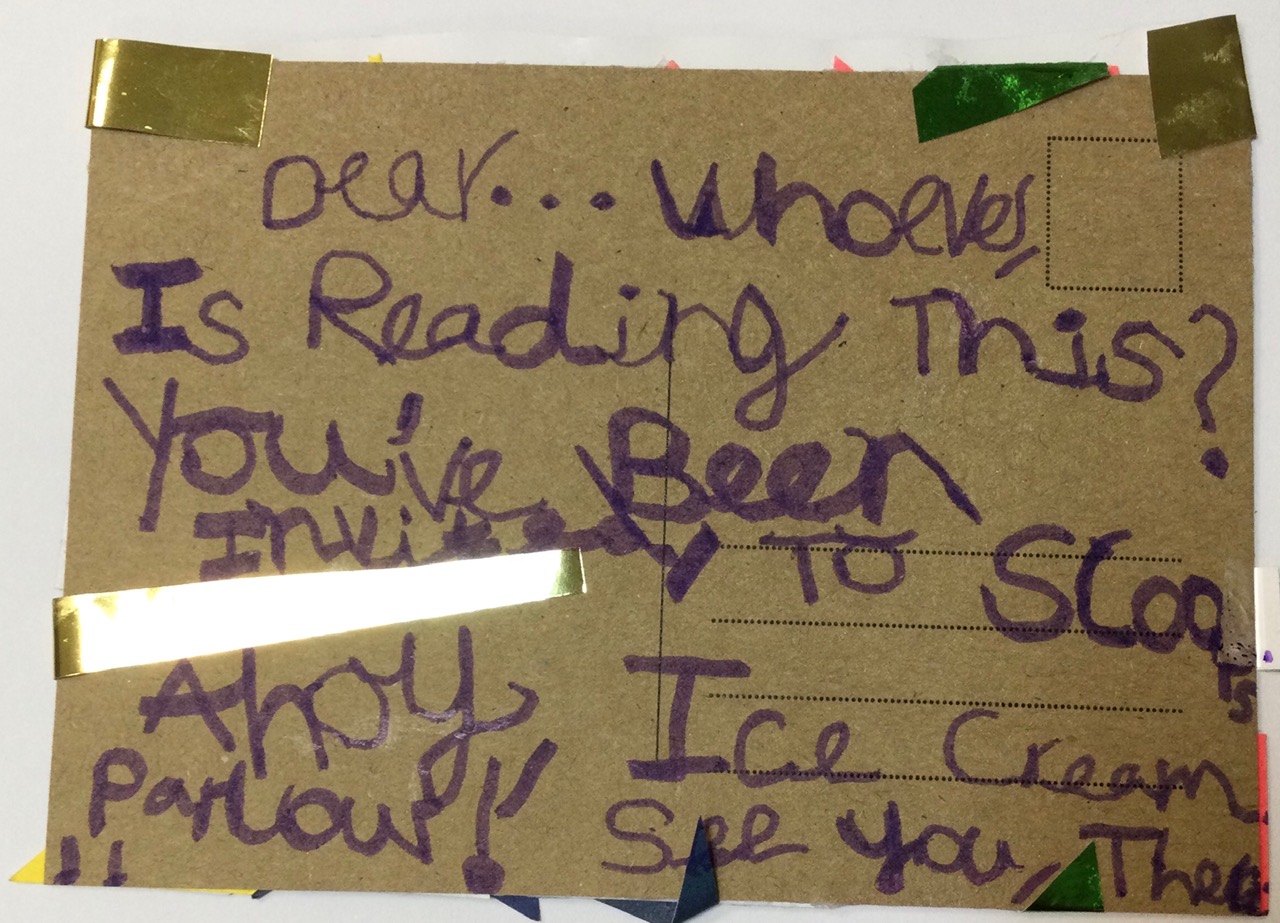 Dear... Whoever,
Is Reading This?
You've Been
Invited To Sloops
Ahoy Ice Cream
Parlour!!
See you, There
!!